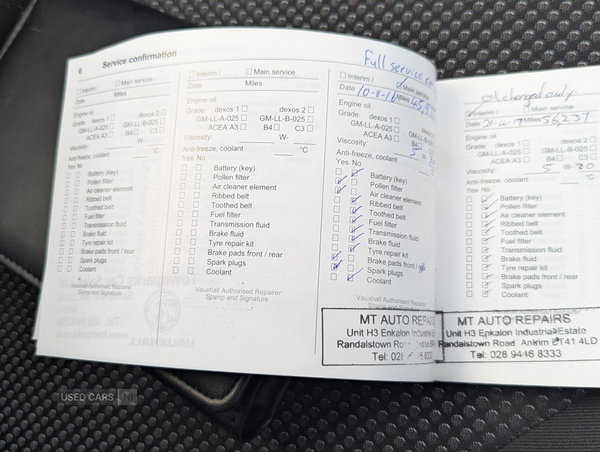 6 Service confirmation
☐ Interim / ☐ Main service
Date Miles
Engine oil
Grade: dexos 1 ☐ dexos 2 ☐
GM-LL-A-025 ☐ GM-LL-B-025 ☐
ACEA A3 ☐ B4 ☐ C3 ☐
Viscosity: W-
Anti-freeze, coolant °C
Yes No
Battery (key)
Pollen filter
Air cleaner element
Ribbed belt
Toothed belt
Fuel filter
Transmission fluid
Brake fluid
Tyre repair kit
Brake pads front / rear
Spark plugs
Coolant
☐ Interim / ☐ Main service
Date Miles
Engine oil
Grade: dexos 1 ☐ dexos 2 ☐
GM-LL-A-025 ☐ GM-LL-B-025 ☐
ACEA A3 ☐ B4 ☐ C3 ☐
Viscosity: W-
Anti-freeze, coolant °C
Yes No
Battery (key)
Pollen filter
Air cleaner element
Ribbed belt
Toothed belt
Fuel filter
Transmission fluid
Brake fluid
Tyre repair kit
Brake pads front / rear
Spark plugs
Coolant
Vauxhall Authorised Repairer
Stamp and Signature
Full service
☐ Interim / Main service
Date 10-8-16 Miles
Engine oil
Grade: dexos 1 ☐
GM-LL-A-025 ☐
ACEA A3 ☐ B4
Viscosity: 5
Anti-freeze, coolant
Yes No
Battery (key)
Pollen filter
Air cleaner element
Ribbed belt
Toothed belt
Fuel filter
Transmission fluid
Brake fluid
Tyre repair kit
Brake pads front /
Spark plugs
Coolant
Vauxhall Authorised Repairer
MT AUTO REPAIRS
Unit H3 Enkalon Industrial
Randalstown Road
Tel: 028
oil changed only
Interim / ☐ Main service
Date Miles 56,237
Engine oil
Grade: dexos 1 ☐ dexos 2 ☐
GM-LL-A-025 ☐ GM-LL-B-025 ☐
ACEA A3 ☐ B4 ☐ C3 ☐
Viscosity: 5 W- 30
Anti-freeze, coolant °C
Yes No
Battery (key)
Pollen filter
Air cleaner element
Ribbed belt
Toothed belt
Fuel filter
Transmission fluid
Brake fluid
Tyre repair kit
Brake pads front / rear
Spark plugs
Coolant
MT AUTO REPAIRS
Unit H3 Enkalon Industrial Estate
Randalstown Road Antrim BT41 4LD
Tel: 028 9446 8333
VAUXHALL
USED CARS NI